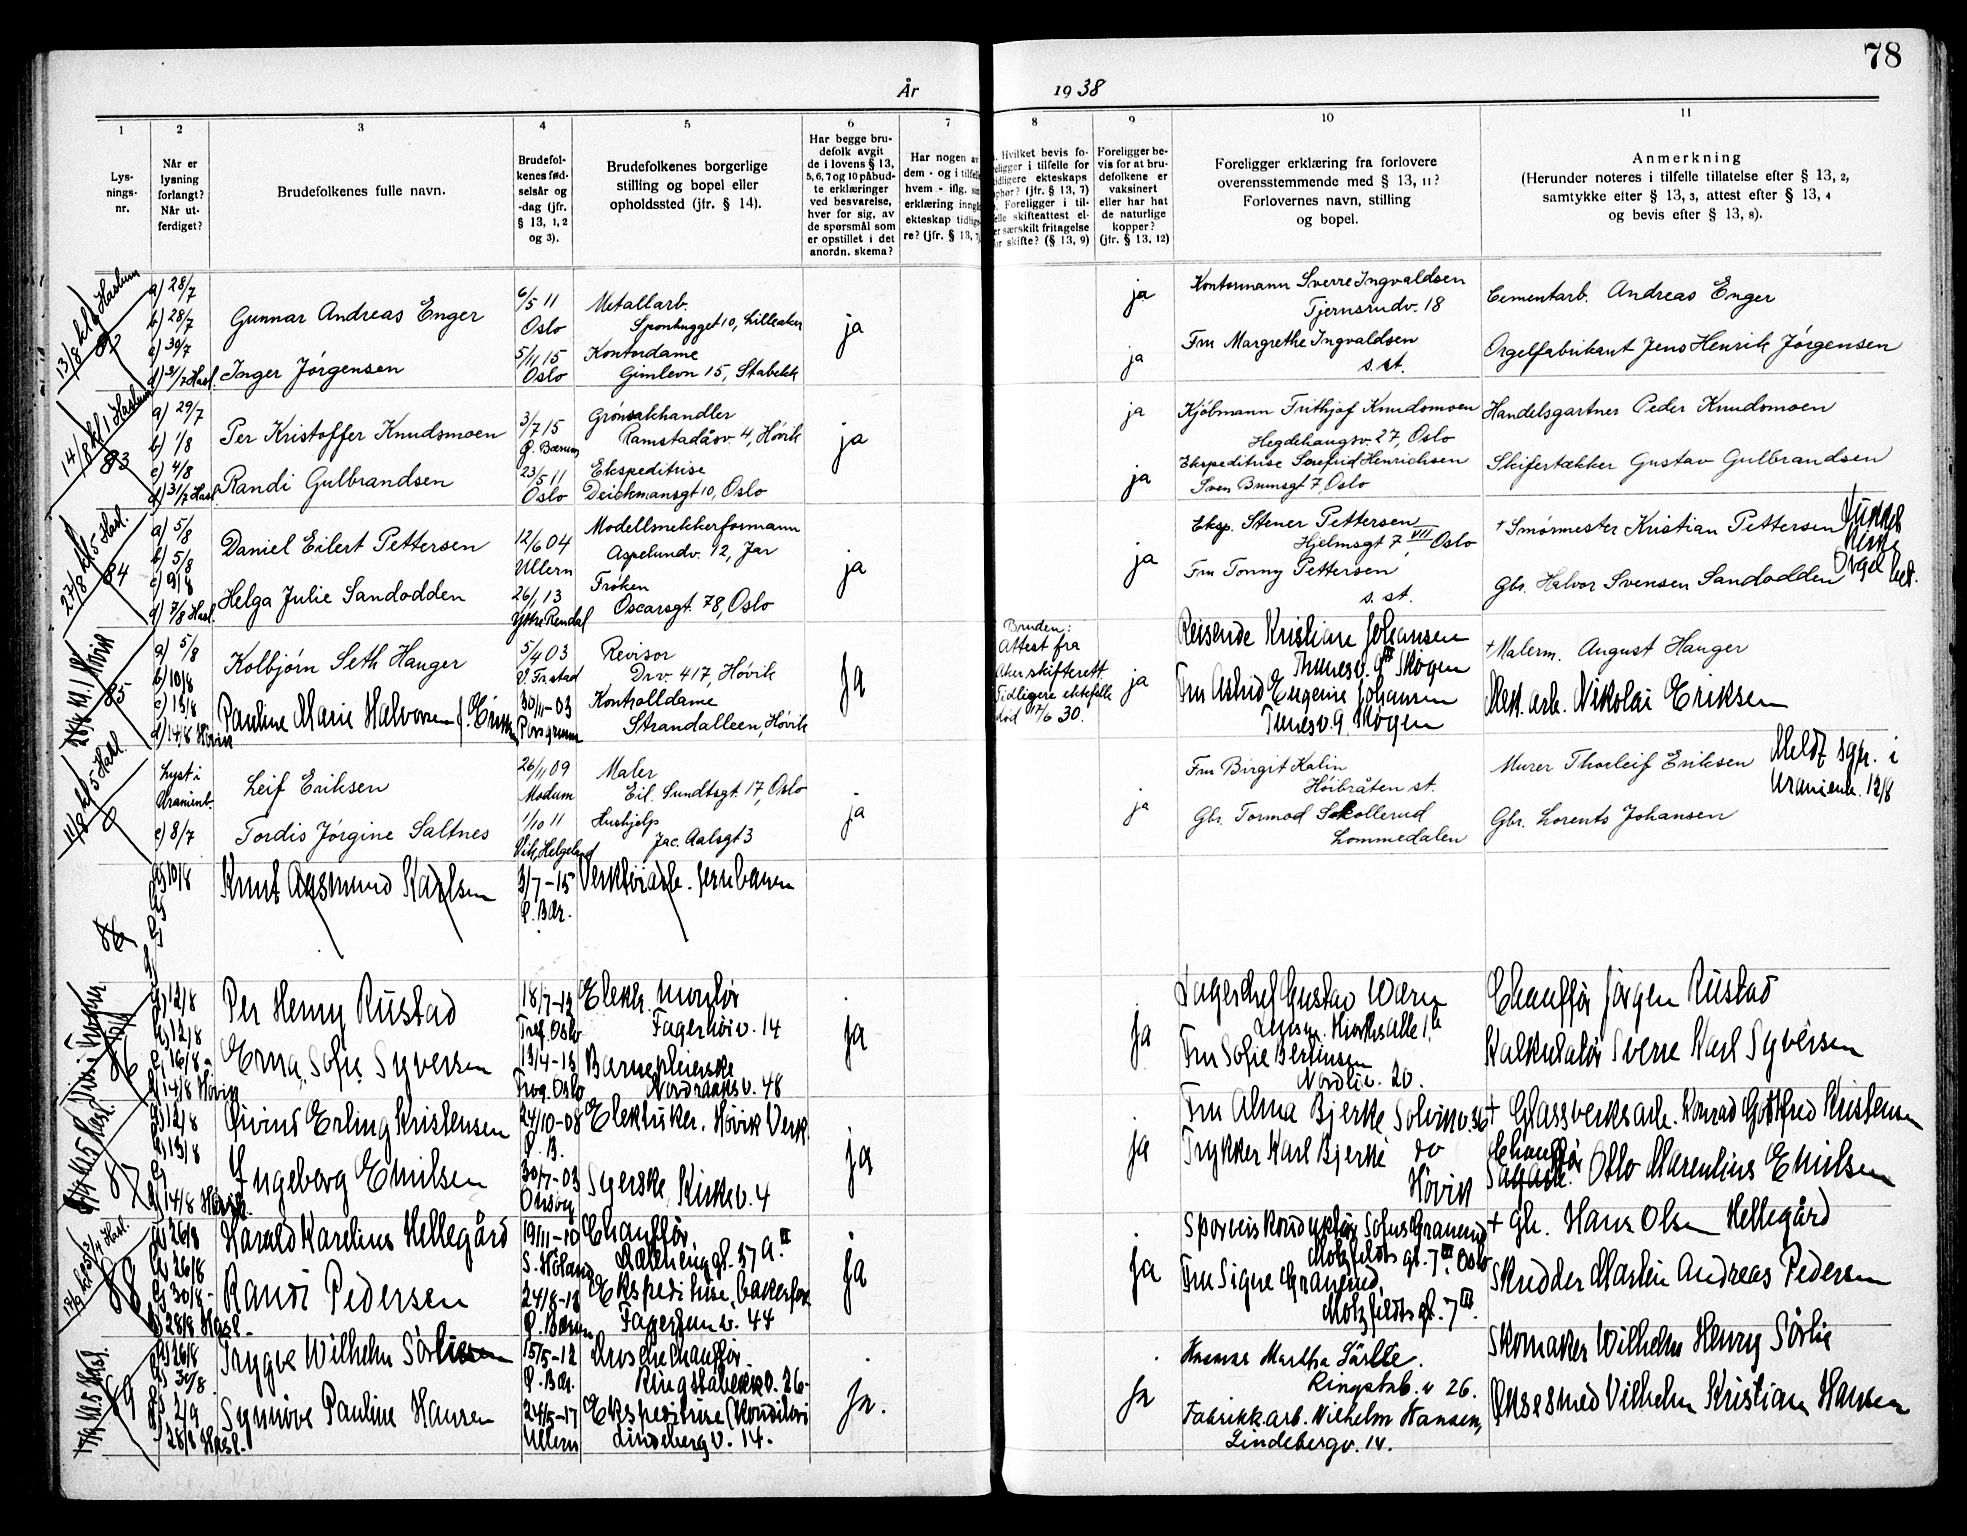 78
År 1938
1 2 3 4 5 6 7 8 9 10 11
Lys-
nings-
nr.
Når er
lysning
forlangt?
Når ut-
ferdiget?
Brudefolkenes fulle navn.
Brudefol-
kenes fød-
selsår og
-dag (jfr.
§ 13, 1, 2
og 3).
Brudefolkenes borgerlige
stilling og bopel eller
opholdssted (jfr. § 14).
Har begge bru-
defolk avgit
de i lovens § 13,
5, 6, 7 og 10 påbud-
te erklæringer
ved besvarelse,
hver for sig, av
de spørsmål som
er opstillet i det
anordn. skema?
Har nogen av
dem - og i tilfelle
hvem - iflg. sin
erklæring inngå
ekteskap tidlige-
re? (jfr. § 13, 7
Hvilket bevis fo-
religger i tilfelle for
tidligere ekteskaps
ophør? (jfr. § 13, 7)
Foreligger i til-
felle skifteattest el-
er særskilt fritagelse
for skifte? (§ 13, 9)
Foreligger be-
vis for at bru-
defolkene er
vaksinert
eller har hat
de naturlige
kopper?
(jfr. § 13, 12)
Foreligger erklæring fra forlovere
overensstemmende med § 13, 11?
Forlovernes navn, stilling
og bopel.
Anmerkning
(Herunder noteres i tilfelle tillatelse efter § 13, 2,
samtykke efter § 13, 3, attest efter § 13, 4
og bevis efter § 13, 8).
a) 28/7
b) 28/7
c) 30/7
d) 31/7 Hasl.
Gunnar Andreas Enger
6/5 11
Oslo
Metallarb.
Sponhugget 10, Lilleaker
ja
ja
Kontormann Sverre Ingvaldsen
Tjernsrudv. 18
Cementarb. Andreas Enger
Inger Jørgensen
5/11 15
Oslo
Kontordame
Gimlevn 15, Stabekk
ja
Fru Margrethe Ingvaldsen
s. st.
Orgelfabrikant Jens Henrik Jørgensen
14/8 kl 1 Haslum
83
a) 29/7
b) 1/8
c) 4/8
d) 31/7 Hasl.
Per Kristoffer Knudsmoen
3/7 15
Ø. Bærum
Grønsakhandler
Ramstadåsv. 4, Høvik
ja
ja
Kjøbmann Frithjof Knudsmoen
Hegdehaugsv. 27, Oslo
Handelsgartner Peder Knudsmoen
Randi Gulbrandsen
23/5 11
Oslo
Ekspeditrise
Deichmansgt 10, Oslo
ja
Ekspeditrise Henrichsen
Sven Brunsgt 7, Oslo
Skifertækker Gustav Gulbrandsen
27/8 kl 5 Hasl.
84
a) 5/8
b) 5/8
c) 9/8
d) 7/8 Hasl.
Daniel Eilert Pettersen
12/6 04
Ullern
Modellsnekkerformann
Aspelundv. 12, Jar
ja
ja
Eksp. Stener Pettersen
Hjelmsgt 7 VII, Oslo
† Smørmester Kristian Pettersen
Helga Julie Sandodden
26/1 13
Ytre Rendal
Frøken
Oscarsgt. 78, Oslo
Fru Tonny Pettersen
s. st.
Gbr. Halvor Svensen Sandodden
Orgel bet.
85
a) 5/8
b) 10/8
c) 13/8
d) 14/8 Høvik
Kolbjørn Seth Hanger
5/4 03
Revisor
Drv. 417, Høvik
Ja
Bruden:
Attest fra
Aker skifterett.
Tidligere ektefelle
død 17/6 30.
ja
Reisende Kristian Johansen
Thunesv. 9 III Skøyen
† Malerm. August Hanger
Pauline Marie Halvorsen f. Eriksen
30/11-03
Porsgrunn
Kontrolldame
Strandalleen, Høvik
Fru Astrid Eugenie Johansen
Tunesv. 9 Skøyen
Mek. arb. Nikolai Eriksen
11/9 kl 5 Hasl.
0
Lyst i
Uranienb.
c) 8/7
Leif Eriksen
26/11 09
Modum
Maler
Eil. Sundtsgt. 17, Oslo
ja
ja
Fru Birgit Kalin
Høibråten st.
Murer Thorleif Eriksen
Meldt sgpr. i
Uranienb. 12/8
Tordis Jørgine Saltnes
1/10 11
Vik, Helgeland
Hushjelp
Jac. Aalsgt 3
Gbr. Tormod Skollerud
Lommedalen
Gbr. Lorents Johansen
86
a) 10/8
Knut Aasmund Karlsen
3/7-15
Ø. Bær.
Verktøiarb. Jernbanen
86
a) 12/8
b) 12/8
c) 16/8
d) 14/8 Høvik
Per Henry Rustad
18/7-12
Tref. Oslo
Elektr. montør
Fagerhøiv. 14
ja
ja
Lagerchef Gustav Wærn
Chauffør Jørgen Rustad
Erna Sofie Syversen
13/4-13
Trog. Oslo
Barnepleierske
Nordraaks v. 48
Fru Sofie Berlinsen
Nordliv. 20.
Kalkulatør Sverre Karl Syversen
87
a) 12/8
b) 13/8
c)
d) 14/8 Høvik
Øivind Erling Kristensen
24/10-08
Ø. B.
Elektriker. Høvik Verk
ja
ja
Fru Alma Bjerke Solvinv. 36
† Glassverksarb. Konrad Gottfred Kristensen
Ingeborg Emilsen
30/7-03
Onsøy
Syerske, Kirkev. 4
Trykker Karl Bjerke do
Høvik
Chauffør
Oslo Marentius Emilsen
88
a) 26/8
b) 26/8
c) 30/8
d) 28/8 Hasl.
Harald Karelius Hellegård
19/11-10
S. Høland
Chauffør.
gt. 37 a. II
ja
ja
Sporveiskonduktør Sofus Granerud
Motzfeldts gt. 7 III, Oslo
† gbr. Hans Olsen Hellegård
Randi Pedersen
24/8-18
Ø. Bærum
Ekspeditrise, bakerforr.
Fagertun v. 44
Fru Signe Granerud
Motzfeldts gt. 7 III.
Skredder Martin Andreas Pedersen
17/9 kl. 5 Hasl.
89
a) 26/8
b) 31/8.
c) 2/9
d) 28/8 Hasl.
Trygve Wilhelm Sørlie
15/5-12
Ø. Bær.
Drosjechauffør.
Ringstabekkv. 26.
Ja.
Ja
Martha Sørlie.
Ringstab. v 26.
Skomaker Wilhelm Henry Sørlie
Synnøve Pauline Hansen
24/5-17
Ullern
Ekspeditrise (Konditori
Lindeberg v. 14.
Fabrikk.arb. Wilhelm Hansen,
Lindebergv. 14.
Øksesmed Vilhelm Kristian Hansen